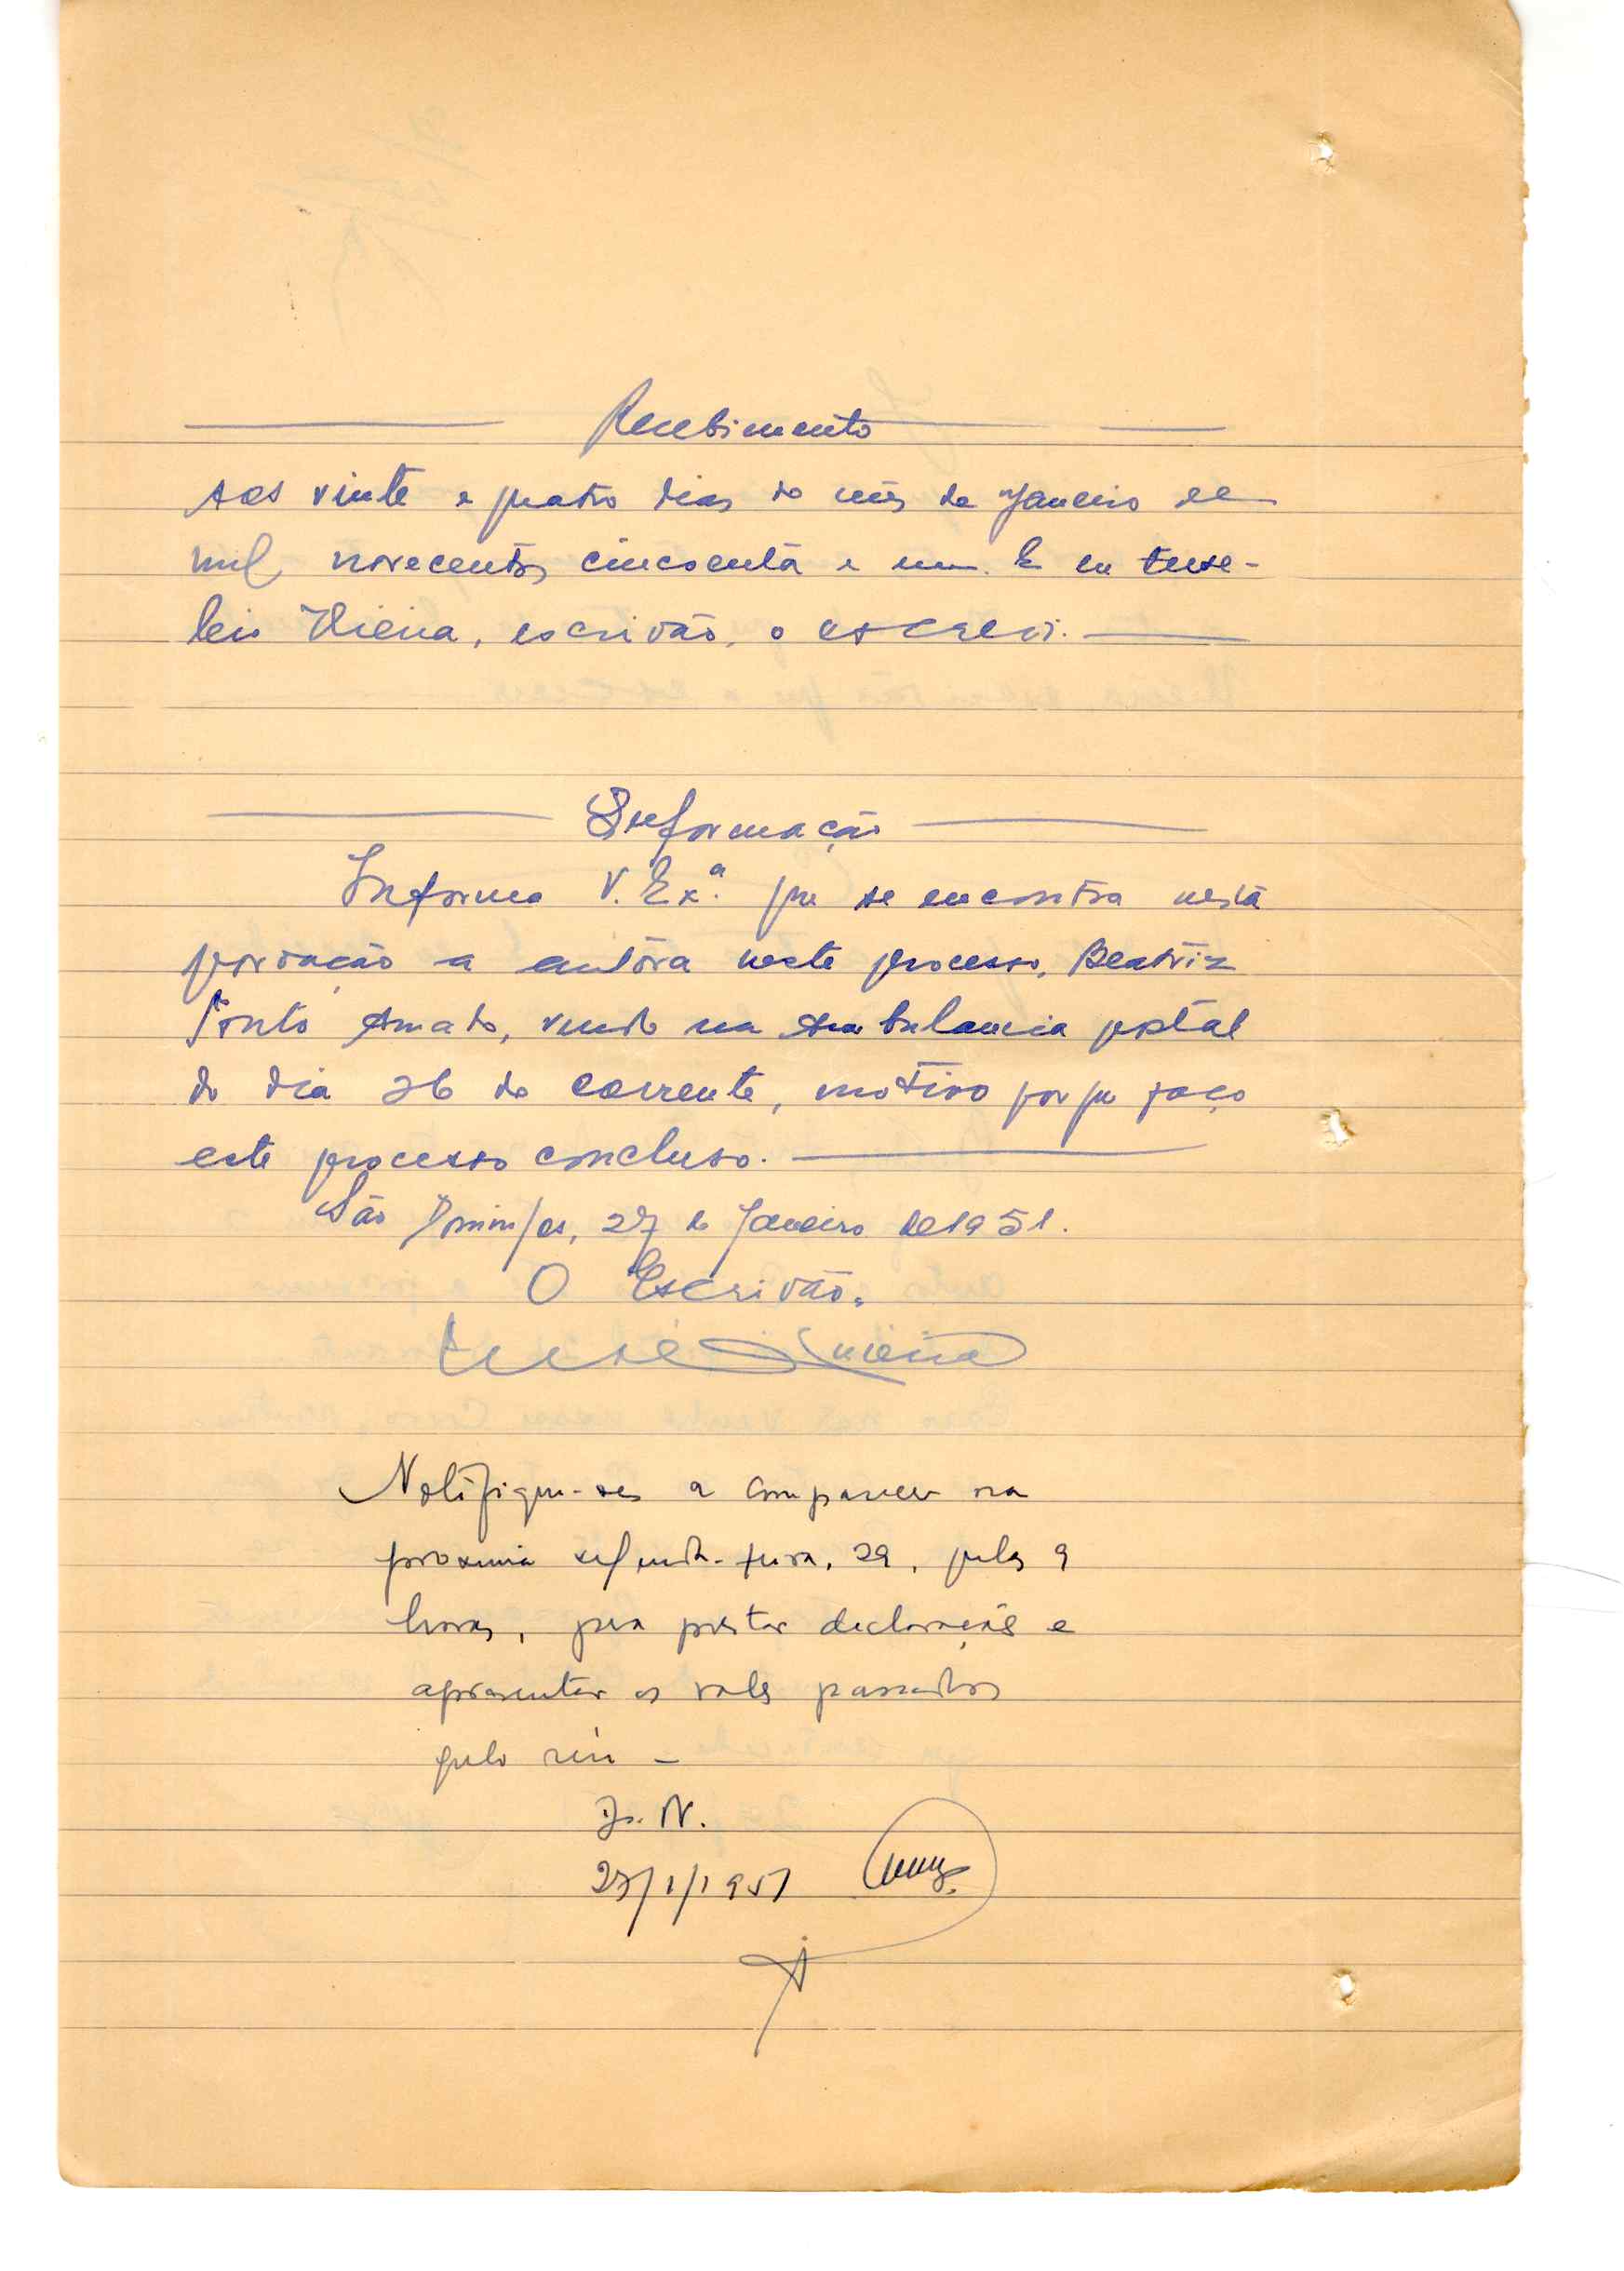 Recebimento
Aos vinte e quatro dias do mês de Janeiro de
mil novecentos cincoenta e um. E eu
Vieira, escrivão, o escrevi.
Informação
Informo V. Ex.ª que se encontra nesta
povoação a autôra neste processo, Beatriz
Amado, vindo na Ambulancia postal
do dia 26 do corrente, motivo porque faço
este processo concluso.
São Domingos, 27 de Janeiro de 1951.
O Escrivão,
Notifique-se a comparecer na
proxima segunda-feira, 29, pelas 9
horas, para prestar declarações e
apresentar os vales passados
pelo réu -
27/1/1951